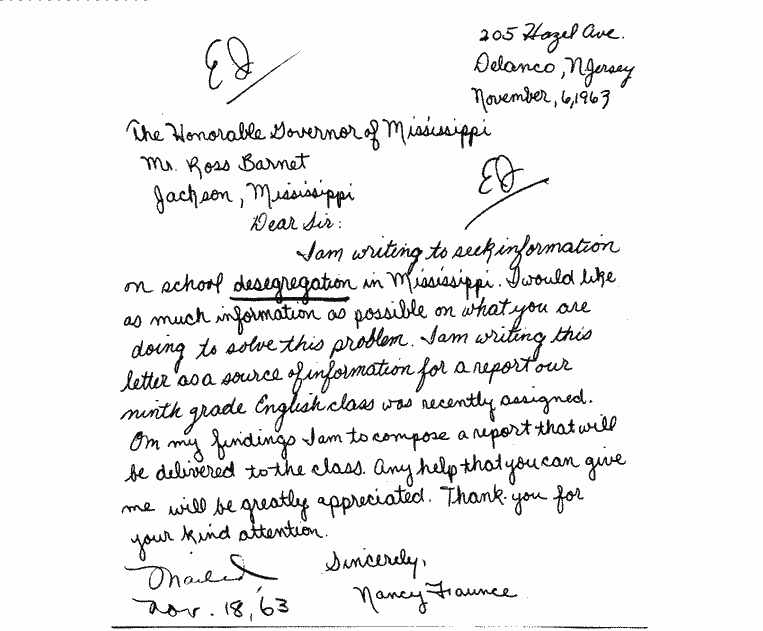 205 Hazel Ave.
Delanco, N Jersey
November, 6, 1963
The Honorable Governor of Mississippi
Mr. Ross Barnet
Jackson, Mississippi
Dear Sir:
I am writing to seek information
on school desegregation in Mississippi. I would like
as much information as possible on what you are
doing to solve this problem. I am writing this
letter as a source of information for a report our
ninth grade English class was recently assigned.
On my findings I am to compose a report that will
be delivered to the class. Any help that you can give
me will be greatly appreciated. Thank you for
your kind attention.
Sincerely,
Nancy Fraunce
Mailed
Nov. 18, '63